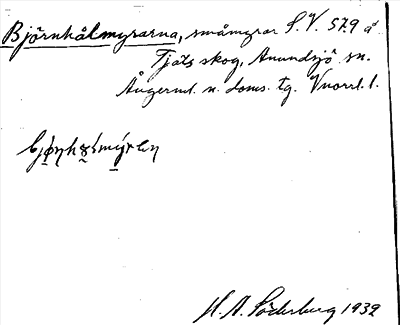 Björnhålmyrarna, småmyror S.V. 579 å
Tjäls skog, Anundsjö sn.
Ångerml. n. doms. tg. Vnorrl. l.
H. A. Söderberg 1932